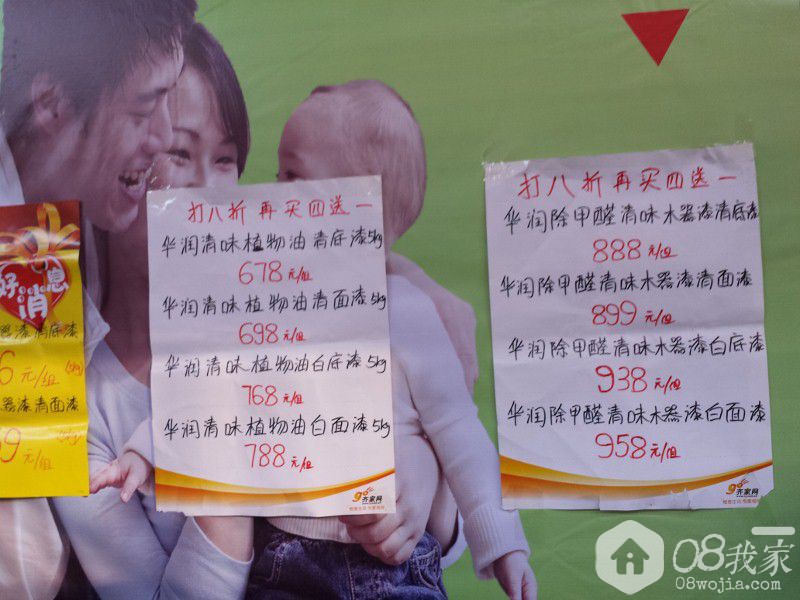 好消息
器漆清底漆
6元/组 (5kg)
器漆清面漆
9元/组 (5kg)
打八折 再买四送一
华润清味植物油清底漆5kg
678元/组
华润清味植物油清面漆5kg
698元/组
华润清味植物油白底漆5kg
768元/组
华润清味植物油白面漆5kg
788元/组
齐家网
打八折再买四送一
华润除甲醛清味木器漆清底漆
888元/组
华润除甲醛清味木器漆清面漆
899元/组
华润除甲醛清味木器漆白底漆
938元/组
华润除甲醛清味木器漆白面漆
958元/组
齐家网
08我家
08wojia.com